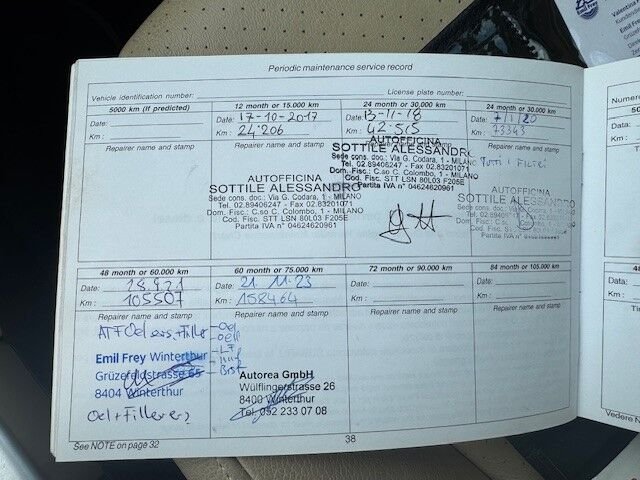 Periodic maintenance service record
Vehicle identification number:
License plate number:
5000 km (If predicted)
Date:
Km:
Repairer name and stamp
12 month or 15.000 km
Date: 17-10-2017
Km: 24'206
Repairer name and stamp
AUTOFFICINA
SOTTILE ALESSANDRO
Sede cons. doc.: Via G. Codara, 1 - MILANO
Tel. 02.89406247 - Fax 02.83201071
Dom. Fisc.: C.so C. Colombo, 1 - MILANO
Cod. Fisc. STT LSN 80L03 F205E
Partita IVA n° 04624620961
24 month or 30.000 km
Date: 13-11-18
Km: 42-515
Repairer name and stamp
AUTOFFICINA
SOTTILE ALESSANDRO
Sede cons. doc.: Via G. Codara, 1 - MILANO
Tel. 02.89406247 - Fax 02.83201071
Dom. Fisc.: C.so C. Colombo, 1 - MILANO
Cod. Fisc. STT LSN 80L03 F205E
Partita IVA n° 04624620961
24 month or 30.000 km
Date: 7/1/20
Km: 73343
Repairer name and stamp
TUTTI I FILTRI
AUTOFFICINA
SOTTILE ALESSANDRO
48 month or 60.000 km
Date:
Km: 105507
Repairer name and stamp
Emil Frey Winterthur
Grüzefeldstrasse 65
8404 Winterthur
60 month or 75.000 km
Date: 21 11.23
Km: 158464
Repairer name and stamp
Autorea GmbH
Wülflingerstrasse 26
8400 Winterthur
Tel. 052 233 07 08
72 month or 90.000 km
Date:
Km:
Repairer name and stamp
84 month or 105.000 km
Date:
Km:
Repairer name and stamp
See NOTE on page 32
38
Emil Frey
Valentina
Kundendie
Emil Frey
Numero
Date:
Km:
Vedere N